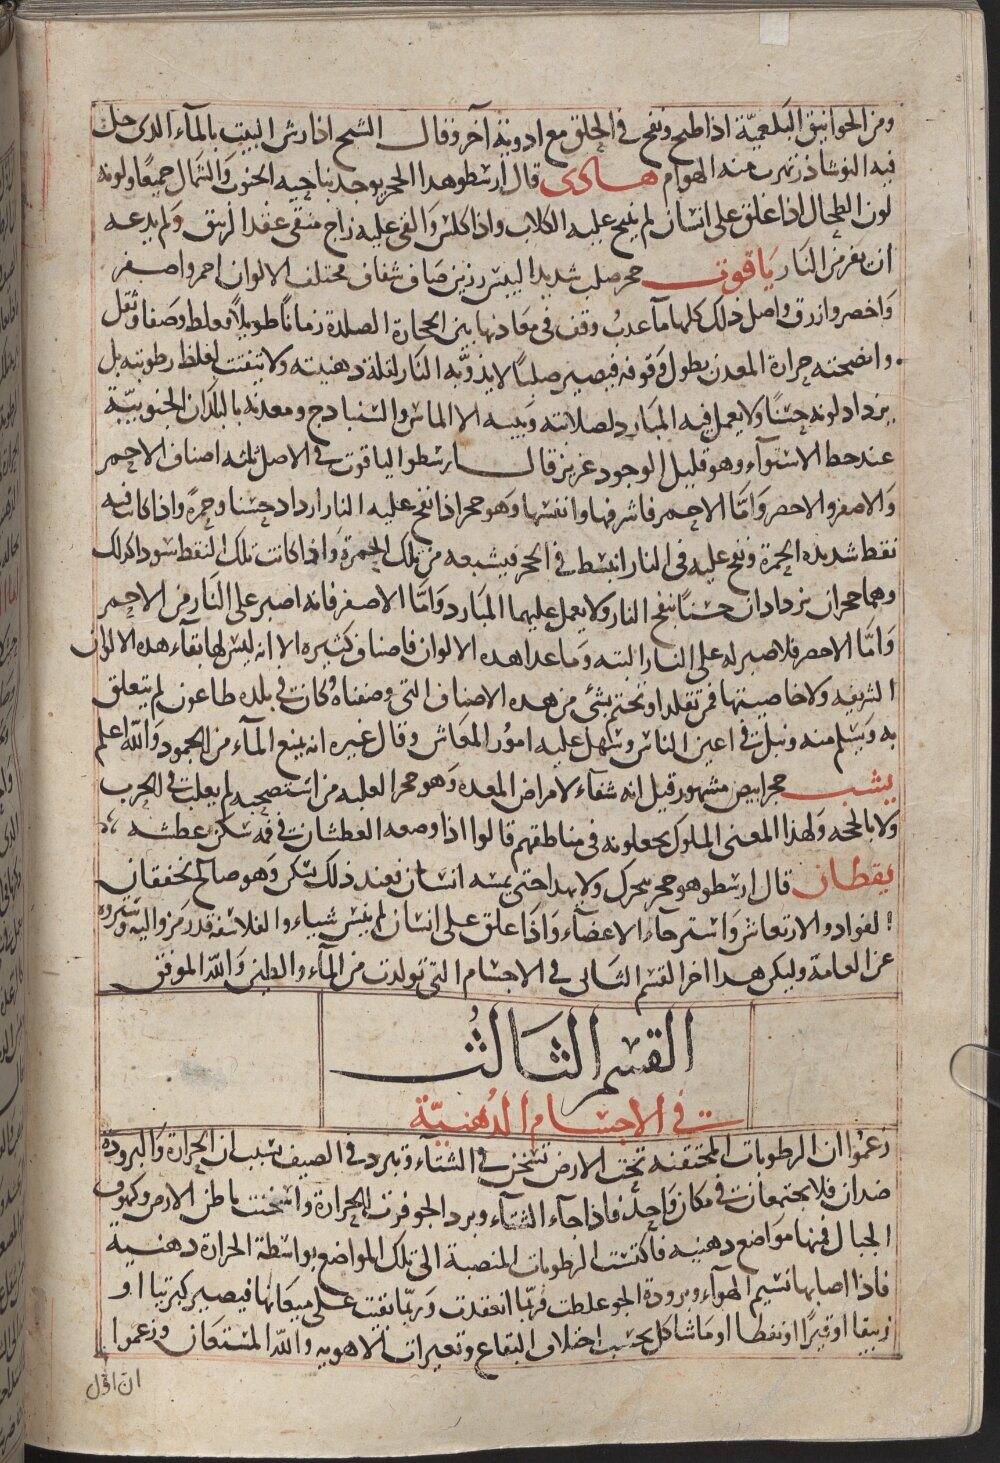 ومن الخوانيق البلغمية اذا طبخ ونفخ فى الحلق مع ادوية آخر وقال الشيخ اذا رش البيت بالمآء الذى حل
فيه النوشاذر تهرب منه الهوام هادى قال ارسطو هدا الحجر يوجد بناحية الجنوب والشمال جميعًا ولونه
لون الطحال اذا علق على انسان لم ينبح عليه الكلاب واذا كلس والقى عليه زاج منقى عقد الزيبق ولم يدعه
ان يفر من النار ياقوت حجر صلب شديد اليبس رزين صاف شفاف مختلف الالوان احمر واصفر
واخضر وازرق واصل ذلك كلها مآ عدب وقف فى معادنها بين الحجارة الصلدة زمانًا طويلًا وغلط وصفا وثقل
وانضجته حرارة المعدن بطول وقوفه فيصير صلبًا لا يدوبه النار لقلة دهنيته ولا يتفتت لغلظ رطوبته بل
يزداد لونه حسنًا ولا يعمل فيه المبارد لصلابته ويبسه الا الماس والسنبادج ومعدنه بالبلدان الجنوبية
عند خط الاستوآء وهو قليل الوجود عزيز قال ارسطو الياقوت فى الاصل ثلثه اصناف الاحمر
والاصفر والاخضر واما الاحمر فاشرفها وانفسها وهو حجر اذا نفخ عليه النار ازداد حسنا وحمرة واذا كانت فيه
نقط شديده الحمرة ونفخ عليه فى النار انبسط فى الحجر فيشبعه من تلك الحمرة واذا كانت تلك النقط سودا كذلك
وهما حجران يزدادان حسنًا بنفخ النار ولا يعمل عليهما المبارد واما الاصفر فانه اصبر على النار من الاحمر
واما الاخضر فلا صبر له على النار البته وما عدا هده الالوان فاصناف كثيره الا انه ليس لها بقآء هده الالوان
الشريفه ولا خاصيتها فمن تقلد او تختم بشئ من هده الاصناف التى وصفناه وكان فى بلده طاعون لم يتعلق
به ويسلم منه ونبل فى اعين الناس وسهل عليه امور المعاش وقال غيره انه يمنع المآء من الجمود والله اعلم
يشب حجر ابيض مشهور قيل انه شفآء لامراض المعده وهو حجر الغلبه من استصحبه لم يغلب فى الحرب
ولا بالحجه ولهذا المعنى الملوك يجعلونه فى مناطقهم قالوا اذا وضعه العطشان فى فمه سكن عطشه
يقطان قال ارسطو هو حجر يحرك ولا يهدا حتى يمسه انسان فعند ذلك يسكن وهو صالح لخفقان
الفواد والارتعاش واسترخآء الاعضآء واذا علق على انسان لم ينس شياء والفلاسفه قد رمزوا اليه وستروه
عن العامة وليكن هدا اخر القسم الثانى فى الاجسام التى تولدت من المآء والطين والله الموفق
القسم الثالث
فى الاجسام الدهنية
زعموا ان الرطوبات المختقنه تحت الارض تسخن فى الشتآء وتبرد فى الصيف بسبب ان الحرارة والبرودة
ضدان فلا يجتمعان فى مكان واحد فاذا جآء الشتآء وبرد الجو فرت الحرارة واستجنت باطن الارض وكهوف
الجبال فمنها مواضع دهنيه فاكتست الرطوبات المنصبة الى تلك المواضع بواسطة الحرارة دهنية
فاذا اصابها نسيم الهوآء وبرودة الجو غلطت فربما انعقدت وربما بقيت على ميعانها فيصير كبريتا او
زيبقا او قيرًا او نفطا او ما شاكل بحسب اختلاف البقاع وتغيرات الاهويه والله المستعان وزعموا
ان اول